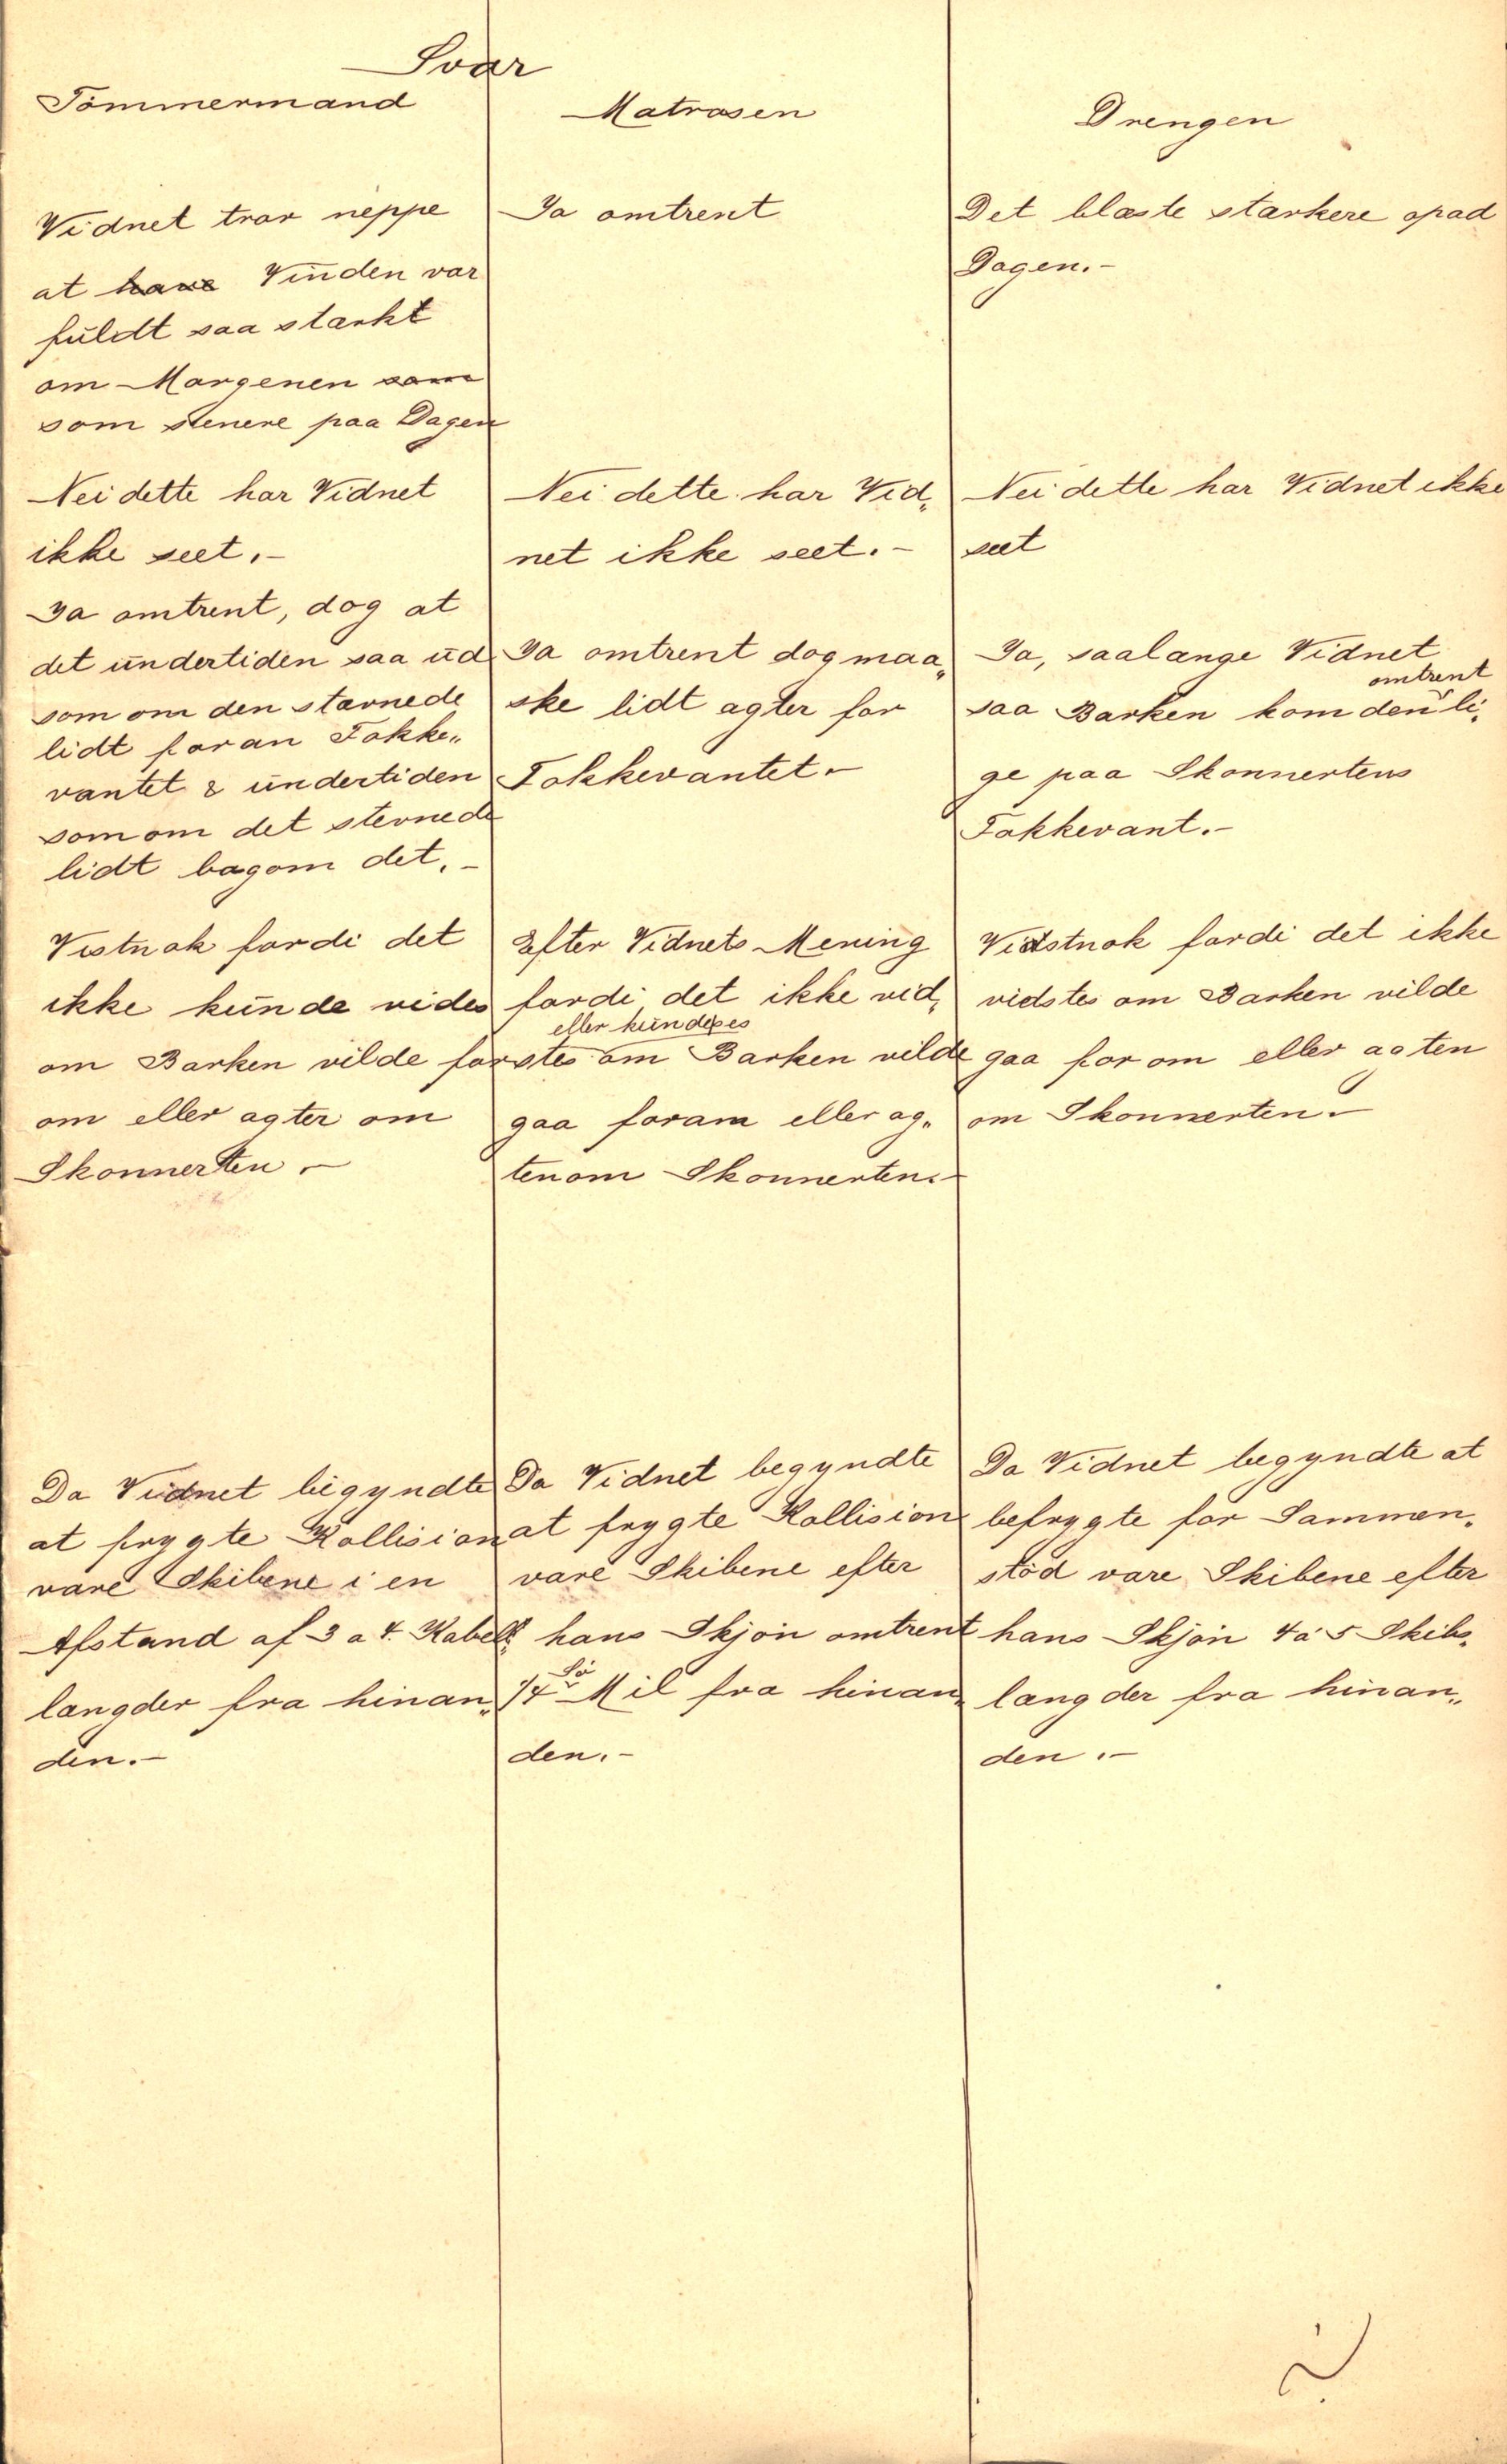 Svar
Tömmermand
Vidnet tror neppe
at have Vinden var
fuldt saa starkt
om Morgenen som
som senere paa Dagen
Nei dette har Vidnet
ikke seet.-
Ja omtrent, dog at
det undertiden saa ud
som om den stævnede
lidt foran Fokke„
vantet & undertiden
som om det stevnede
lidt bagom det.-
Vistnok fordi det
ikke kunde vides
om Barken vilde for
om eller agter om
Skonnerten.-
Da Vidnet begyndte
at frygte Kollision
vare Skibene i en
Afstand af 3 a 4. Kabel„
langder fra hinan„
den.-
Matrosen
Ja omtrent
Nei dette har Vid„
net ikke seet.-
Ja omtrent dog maa„
ske lidt agter for
Fokkevantet.-
Efter Vidnets Mening
fordi det ikke vid„
eller kunde sees
stes om Barken vilde
gaa foram eller ag„
tenom Skonnerten.-
Da Vidnet begyndte
at frygte Kollision
vare Skibene efter
hans Skjön omtrent
1/4 Sö Mil fra hinan„
den.-
Drengen
Det blæste starkere opad
Dagen.-
Nei dette har Vidnet ikke
seet
Ja, saalange Vidnet
omtrent
saa Barken kom den li„
ge paa Skonnertens
Fokkevant.-
Vidstnok fordi det ikke
vidstes om Barken vilde
gaa forom eller agten
om Skonnerten.-
Da Vidnet begyndte at
befrygte for Sammen„
stöd vare Skibene efter
hans Skjön 4 á 5 Skibs„
langder fra hinan„
den.-